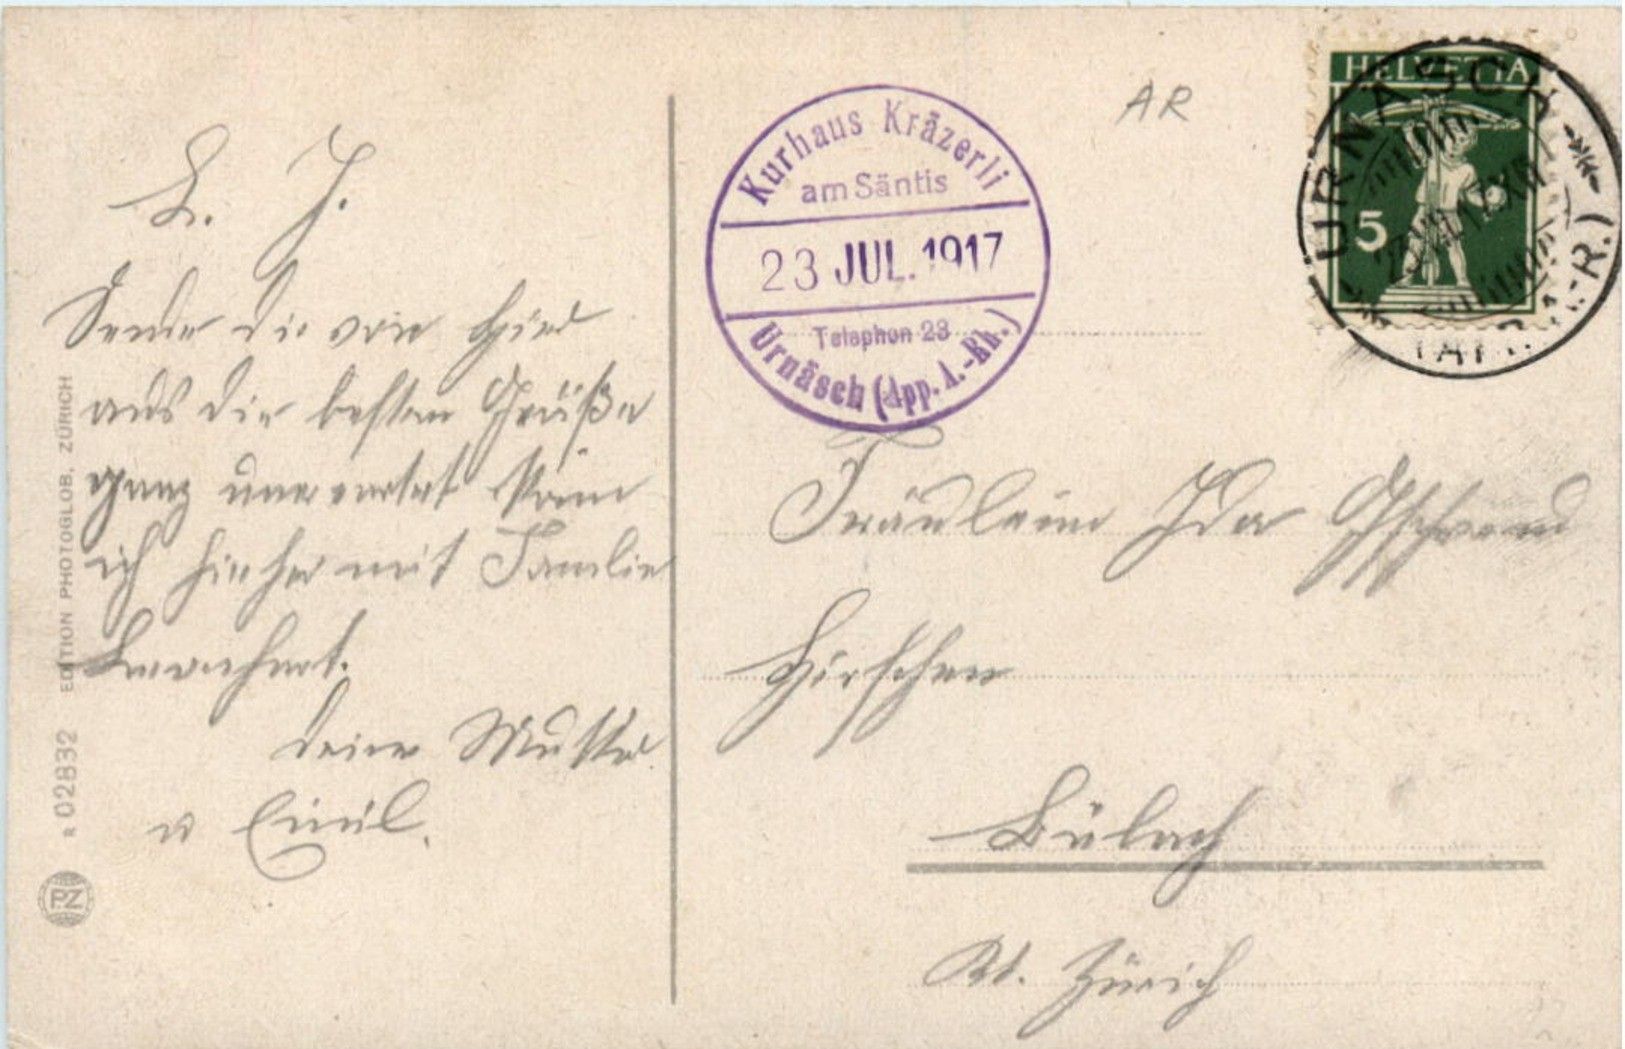 L. J.
Sende dir von hier
aus die besten Grüße
ganz unerwartet kam
ich hieher mit Familie
deine Mutter
u Emil.
EDITION PHOTOGLOB, ZÜRICH
R 02832
PZ
Kurhaus Kräzerli
am Säntis
23 JUL. 1917
Telephon 23
Urnäsch (App. A.-Rh.)
AR
HELVETIA
5
URNÄSCH
Fräulein Ida Gschwend
Hirschen
Bülach
Kt. Zürich